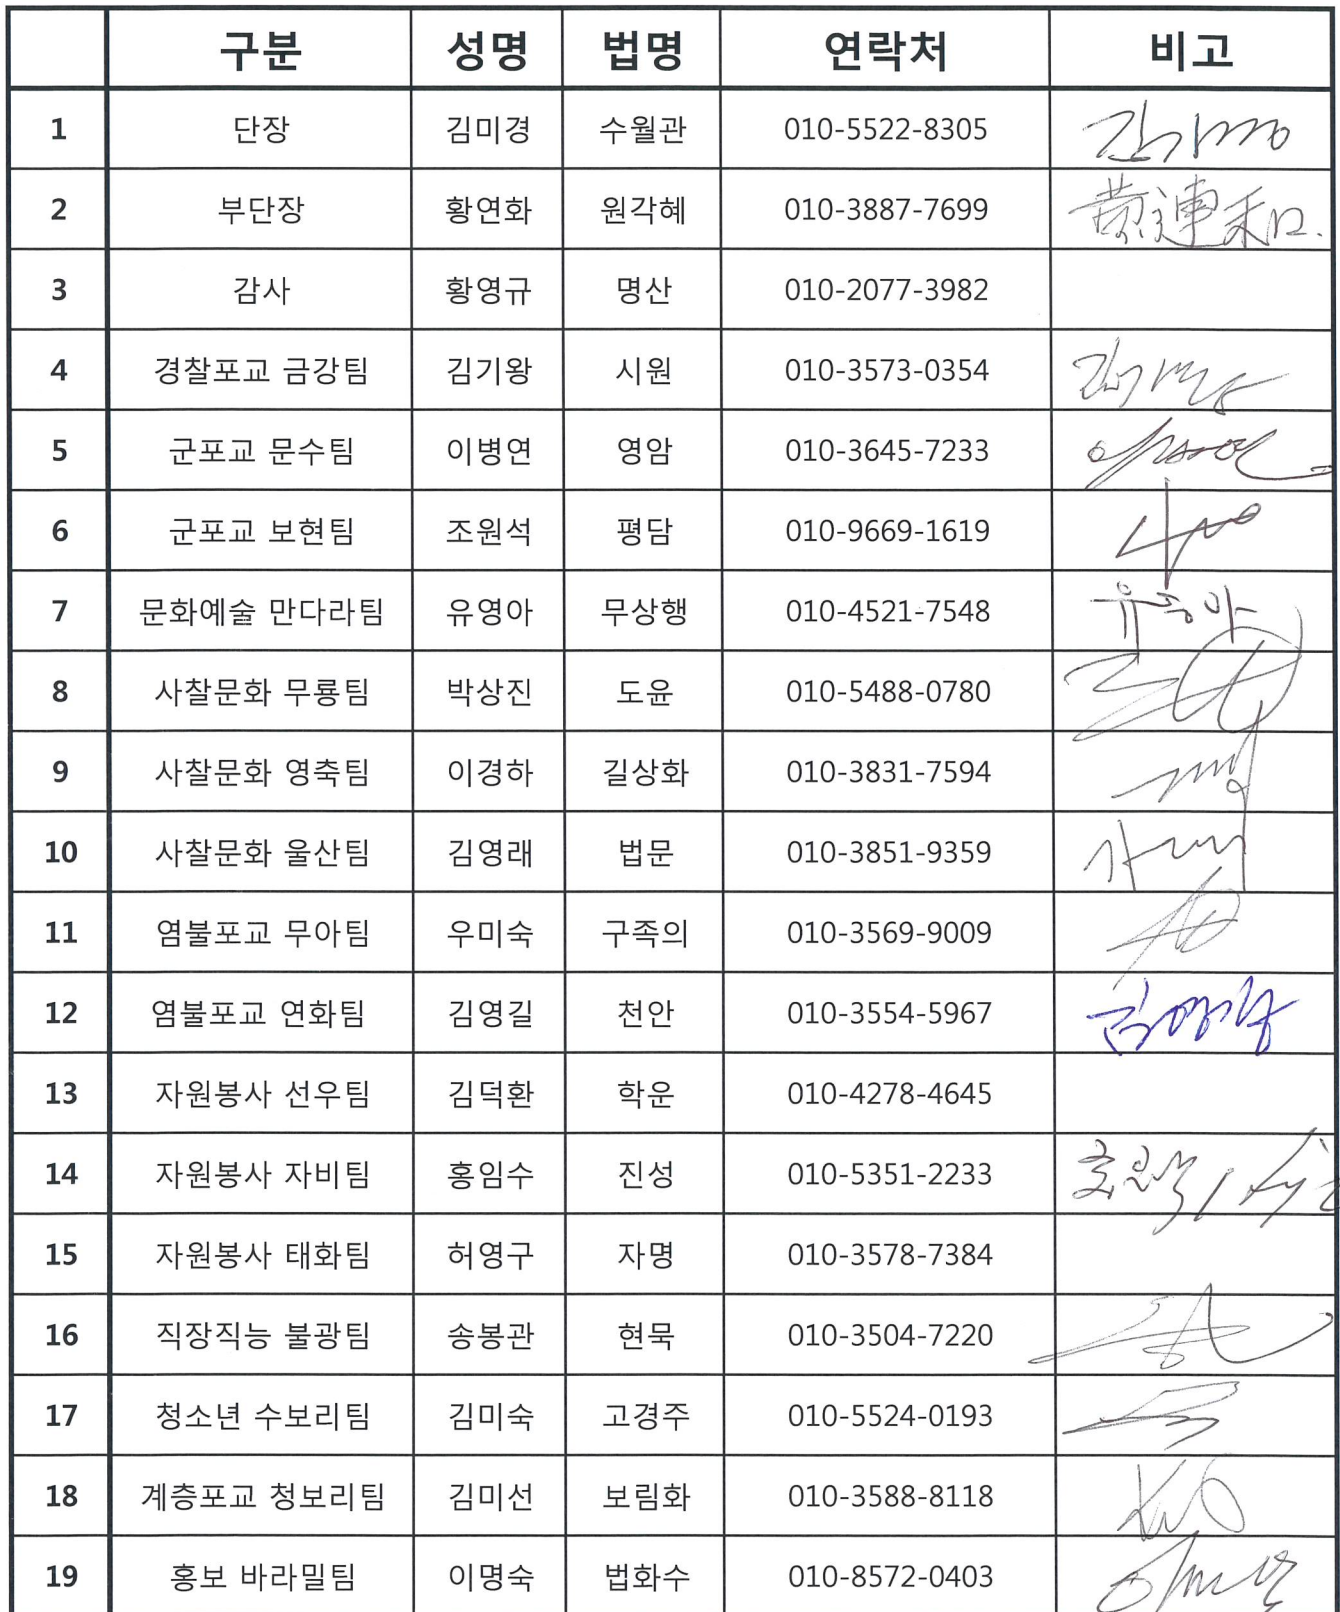 구분 성명 법명 연락처 비고
1 단장 김미경 수월관 010-5522-8305
2 부단장 황연화 원각혜 010-3887-7699
3 감사 황영규 명산 010-2077-3982
4 경찰포교 금강팀 김기왕 시원 010-3573-0354
5 군포교 문수팀 이병연 영암 010-3645-7233
6 군포교 보현팀 조원석 평담 010-9669-1619
7 문화예술 만다라팀 유영아 무상행 010-4521-7548 유영아
8 사찰문화 무룡팀 박상진 도윤 010-5488-0780
9 사찰문화 영축팀 이경하 길상화 010-3831-7594
10 사찰문화 울산팀 김영래 법문 010-3851-9359
11 염불포교 무아팀 우미숙 구족의 010-3569-9009
12 염불포교 연화팀 김영길 천안 010-3554-5967
13 자원봉사 선우팀 김덕환 학운 010-4278-4645
14 자원봉사 자비팀 홍임수 진성 010-5351-2233
15 자원봉사 태화팀 허영구 자명 010-3578-7384
16 직장직능 불광팀 송봉관 현묵 010-3504-7220
17 청소년 수보리팀 김미숙 고경주 010-5524-0193
18 계층포교 청보리팀 김미선 보림화 010-3588-8118
19 홍보 바라밀팀 이명숙 법화수 010-8572-0403